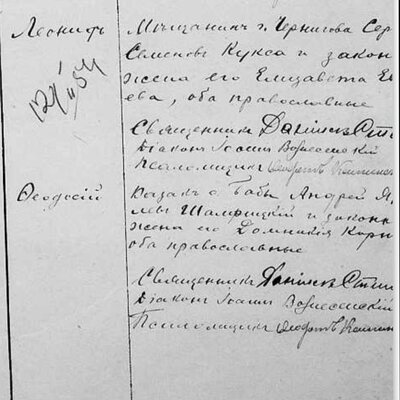 Леонидъ
Мѣщанинъ г. Чернигова Сер
Семеновъ Кукса и закон
жена его Елизавета Ев
ева, оба православные
Священникъ Даніилъ
Діаконъ Іоаннъ Вознесенскій
Псаломщикъ
Ѳеодосій
Казакъ с. Бабы Андрей Я
и законн
жена его Домникія Корн
оба православные
Священникъ Даніилъ
Діаконъ Іоаннъ Вознесенскій
Псаломщикъ